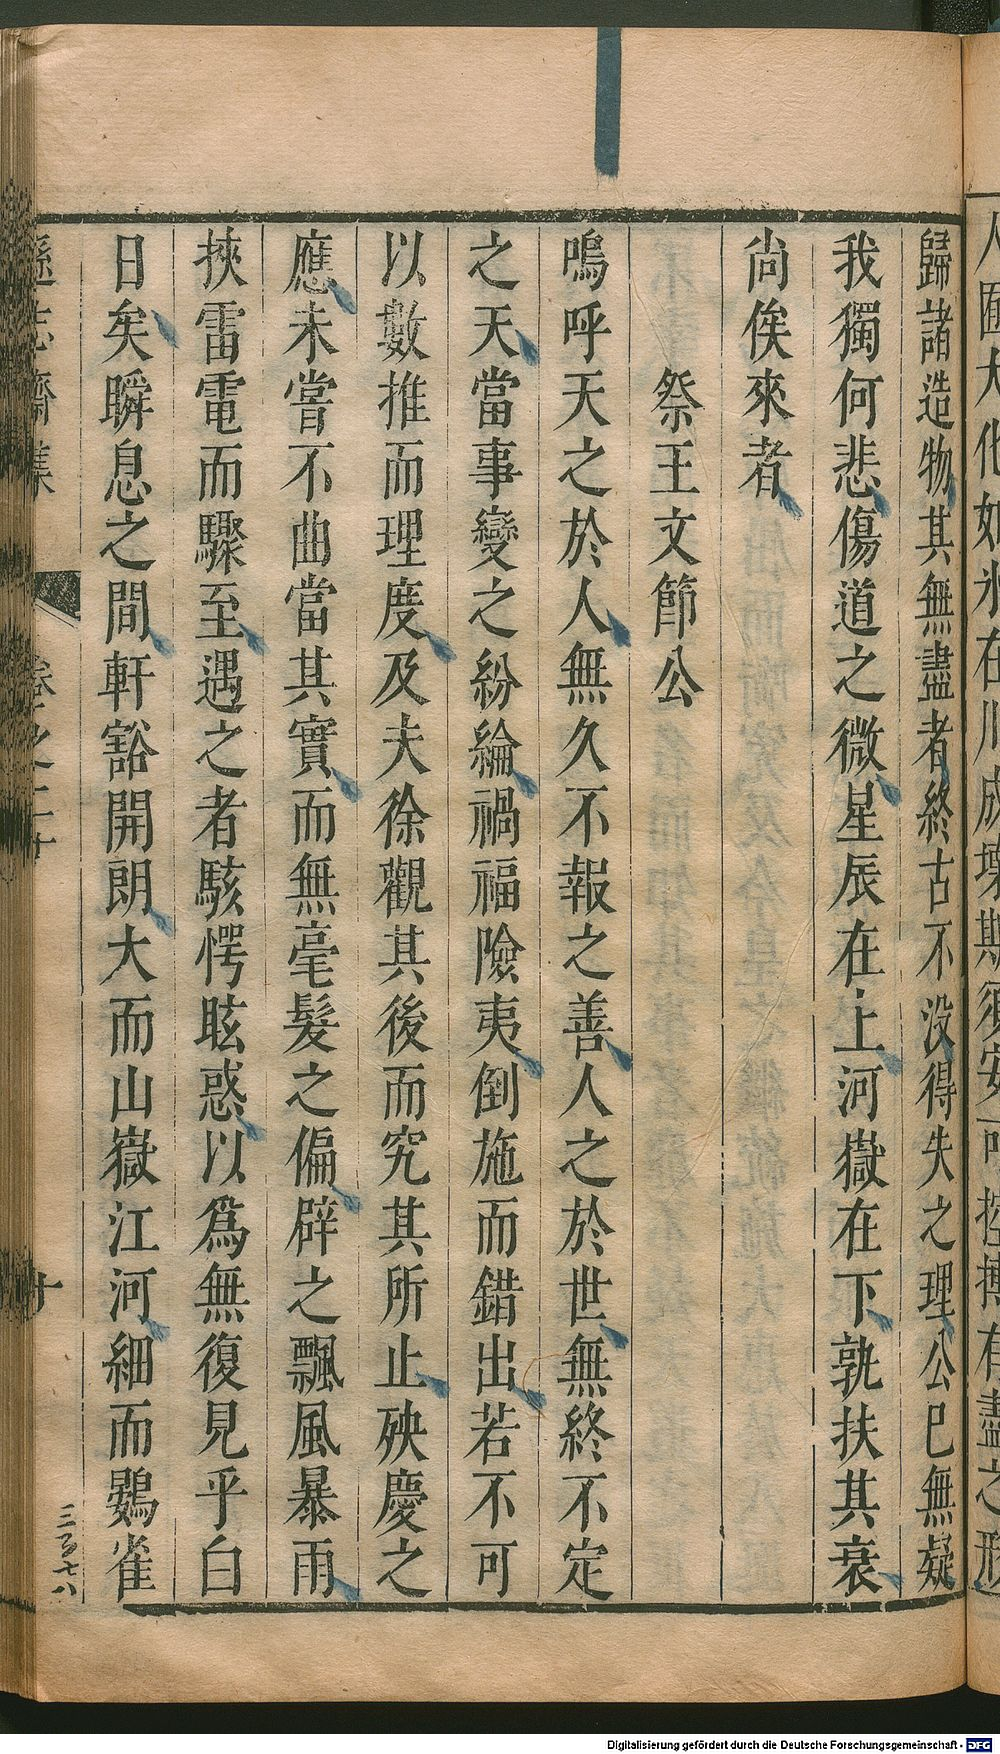 歸諸造物其無盡者終古不没得失之理公巳無疑
我獨何悲傷道之微星辰在上河嶽在下孰扶其衰
尚俟來者
祭王文節公
嗚呼天之於人無久不報之善人之於世無終不定
之天當事變之紛綸禍福險夷倒施而錯出若不可
以數推而理度及夫徐觀其後而究其所止殃慶之
應未嘗不曲當其實而無毫髮之偏辟之飄風暴雨
挾雷電而驟至遇之者駭愕眩惑以爲無復見乎白
日矣瞬息之間軒豁開朗大而山嶽江河細而鷃雀
遜志齋集
卷之二十
十
三百七八
Digitalisierung gefördert durch die Deutsche Forschungsgemeinschaft - DFG